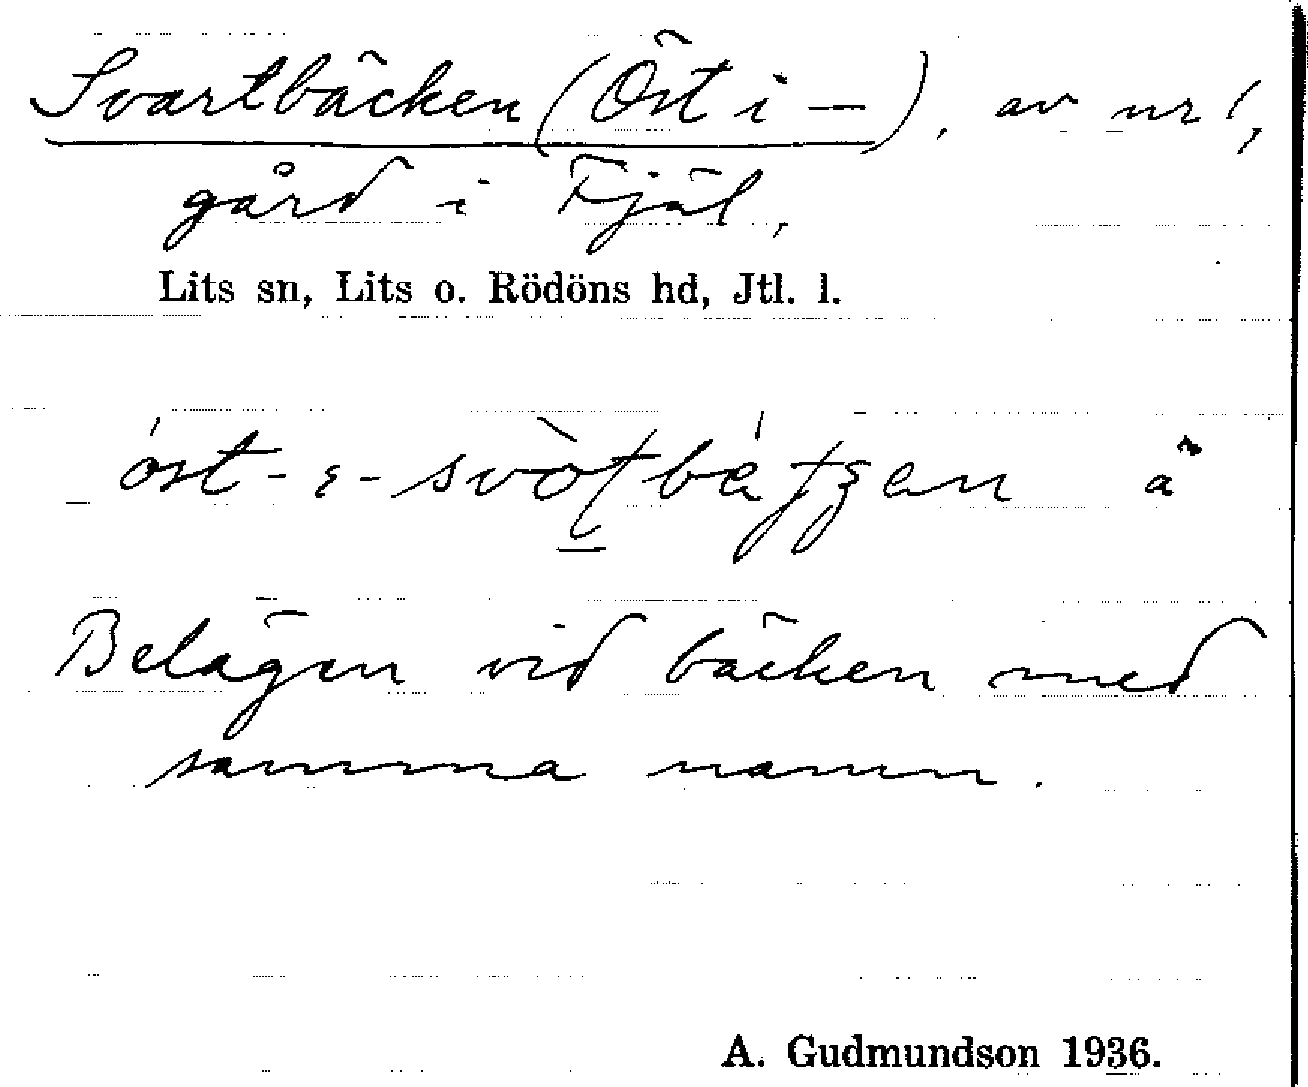 Svartbäcken (Öst i —), av nr 1,
gård i Fjäl,
Lits sn, Lits o. Rödöns hd, Jtl. l.
å
Belägen vid bäcken med
samma namn.
A. Gudmundson 1936.